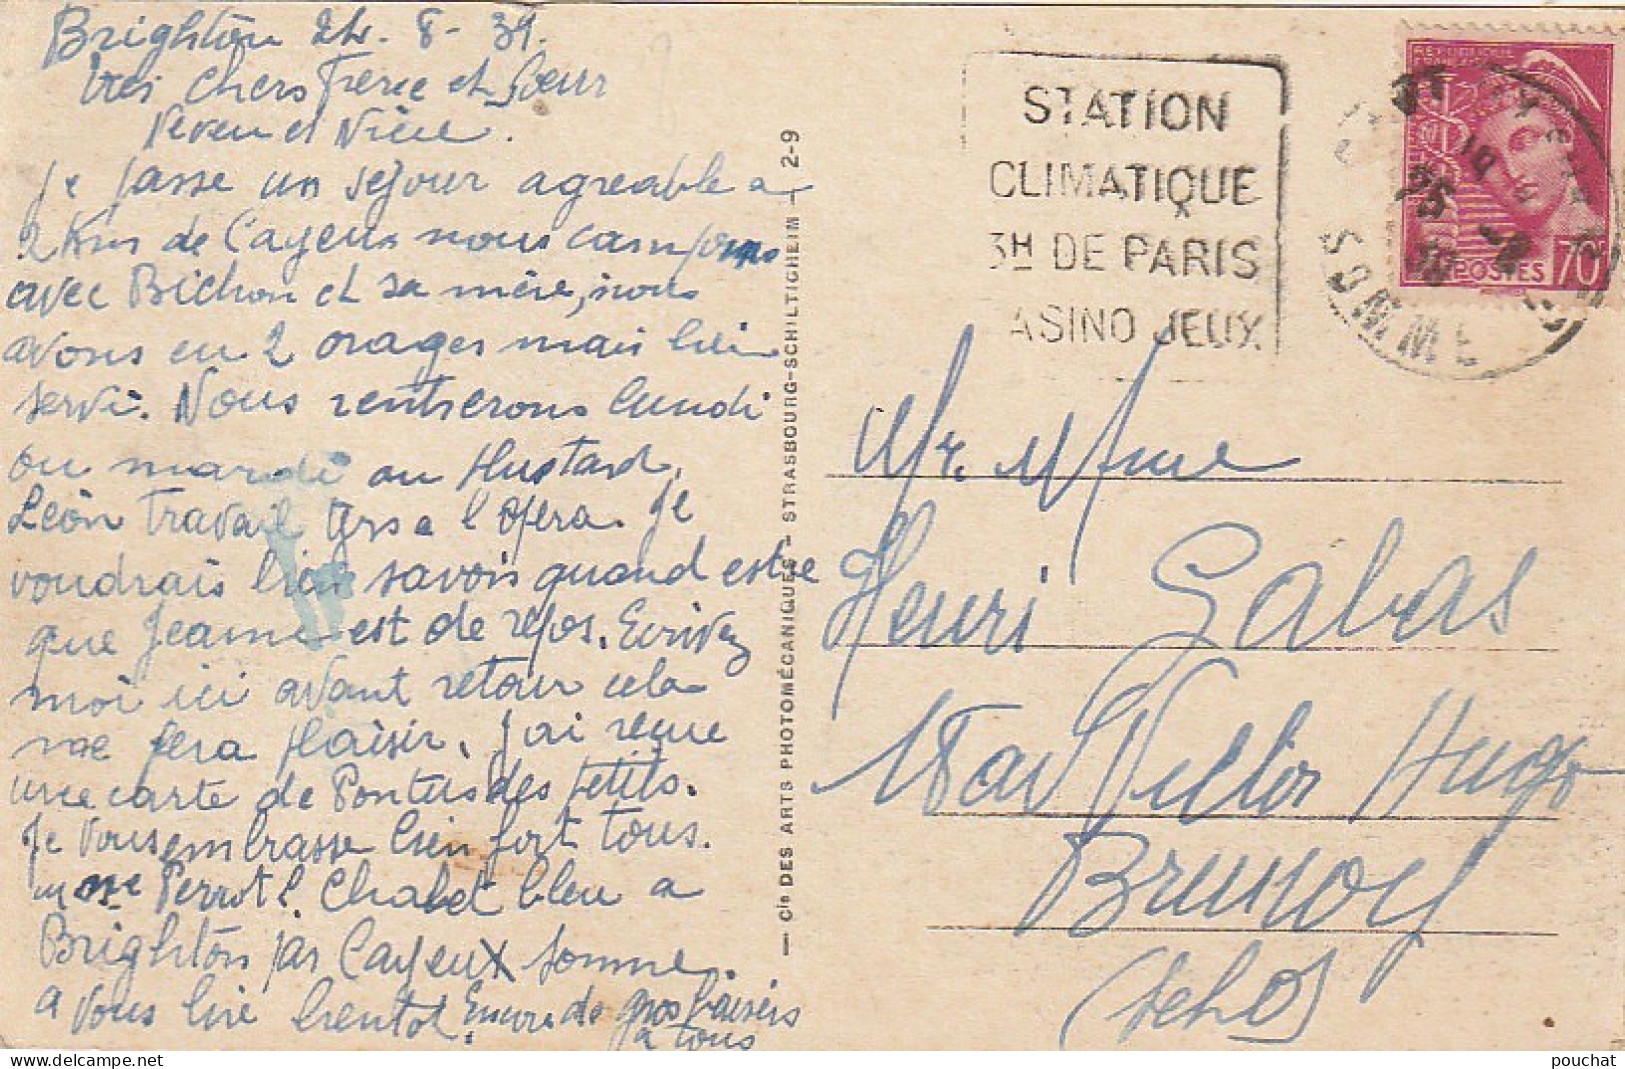 Brighton 24. 8 - 39.
très chers Frère et Sœur
Neveu et Nièce.
Je passe un séjour agréable a
2 Kms de Cayeux nous campons
avec Bichon et sa mère, nous
avons eu 2 orages mais bien
servi. Nous rentrerons lundi
ou mardi au Hustard.
Léon travail à l'Opera. Je
voudrais bien savoir quand est se
que Jeanne est de repos. Ecrivez
moi ici avant retour cela
me fera plaisir. J'ai reçue
une carte de Pontus des petits.
Je vous embrasse bien fort tous.
Mme Perrot l. Chalet bleu a
Brighton par Cayeux Somme.
a vous lire bientot. Encore de gros baisers
a tous
— Cie DES ARTS PHOTOMÉCANIQUES — STRASBOURG-SCHILTIGHEIM — 2-9
STATION
CLIMATIQUE
3H DE PARIS
ASINO JEUX.
REPUBLIQUE
FRANÇAISE
POSTES 70c
SOMME
Mr. Mme
Henri Galas
Victor Hugo
Brunoy
(S et O)
pouchat